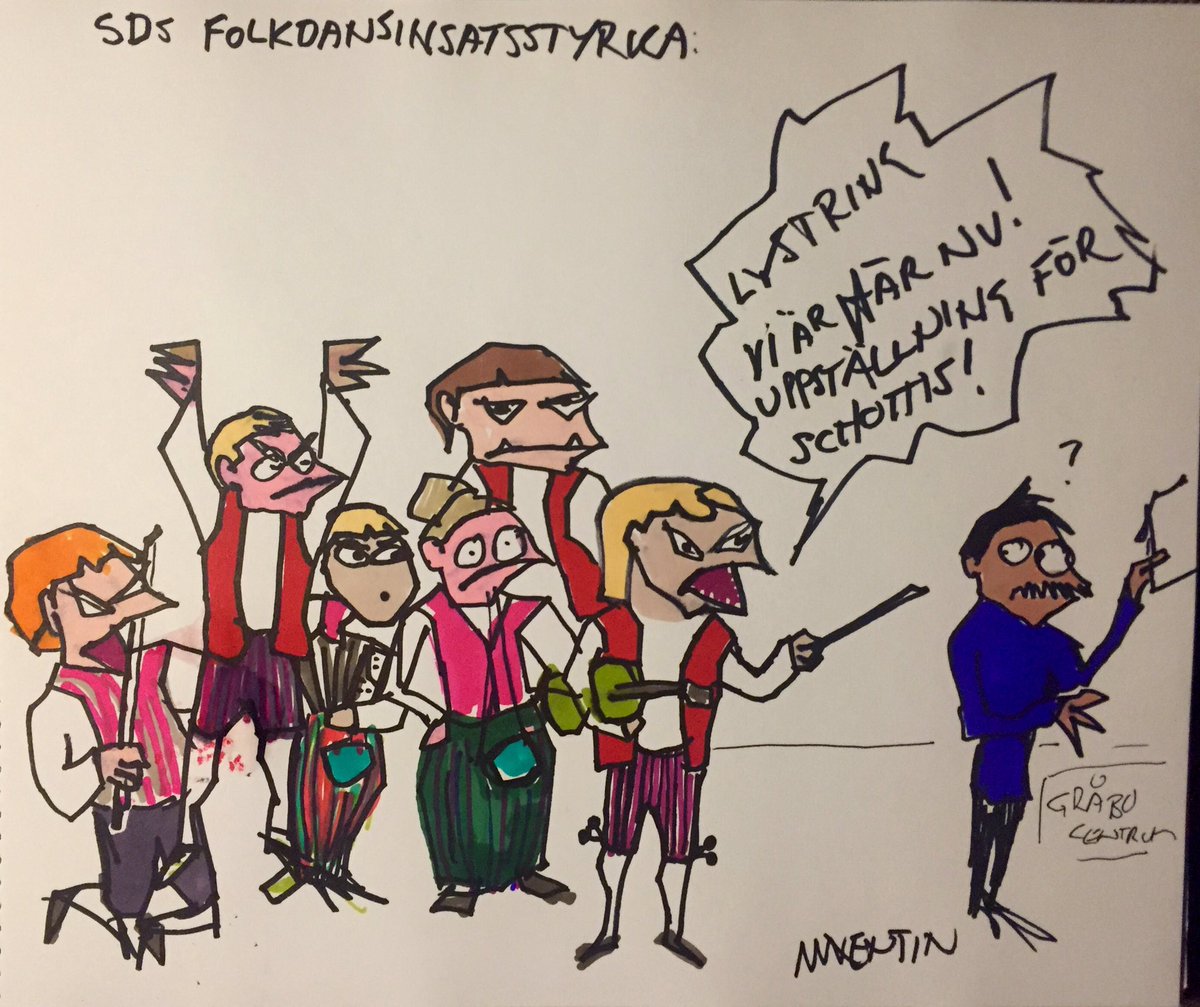 SDs FOLKDANSINSATSSTYRKA:
LYSTRING
VI ÄR HÄR NU!
UPPSTÄLLNING FÖR
SCHOTTIS!
?
GRÅBO
CENTRUM